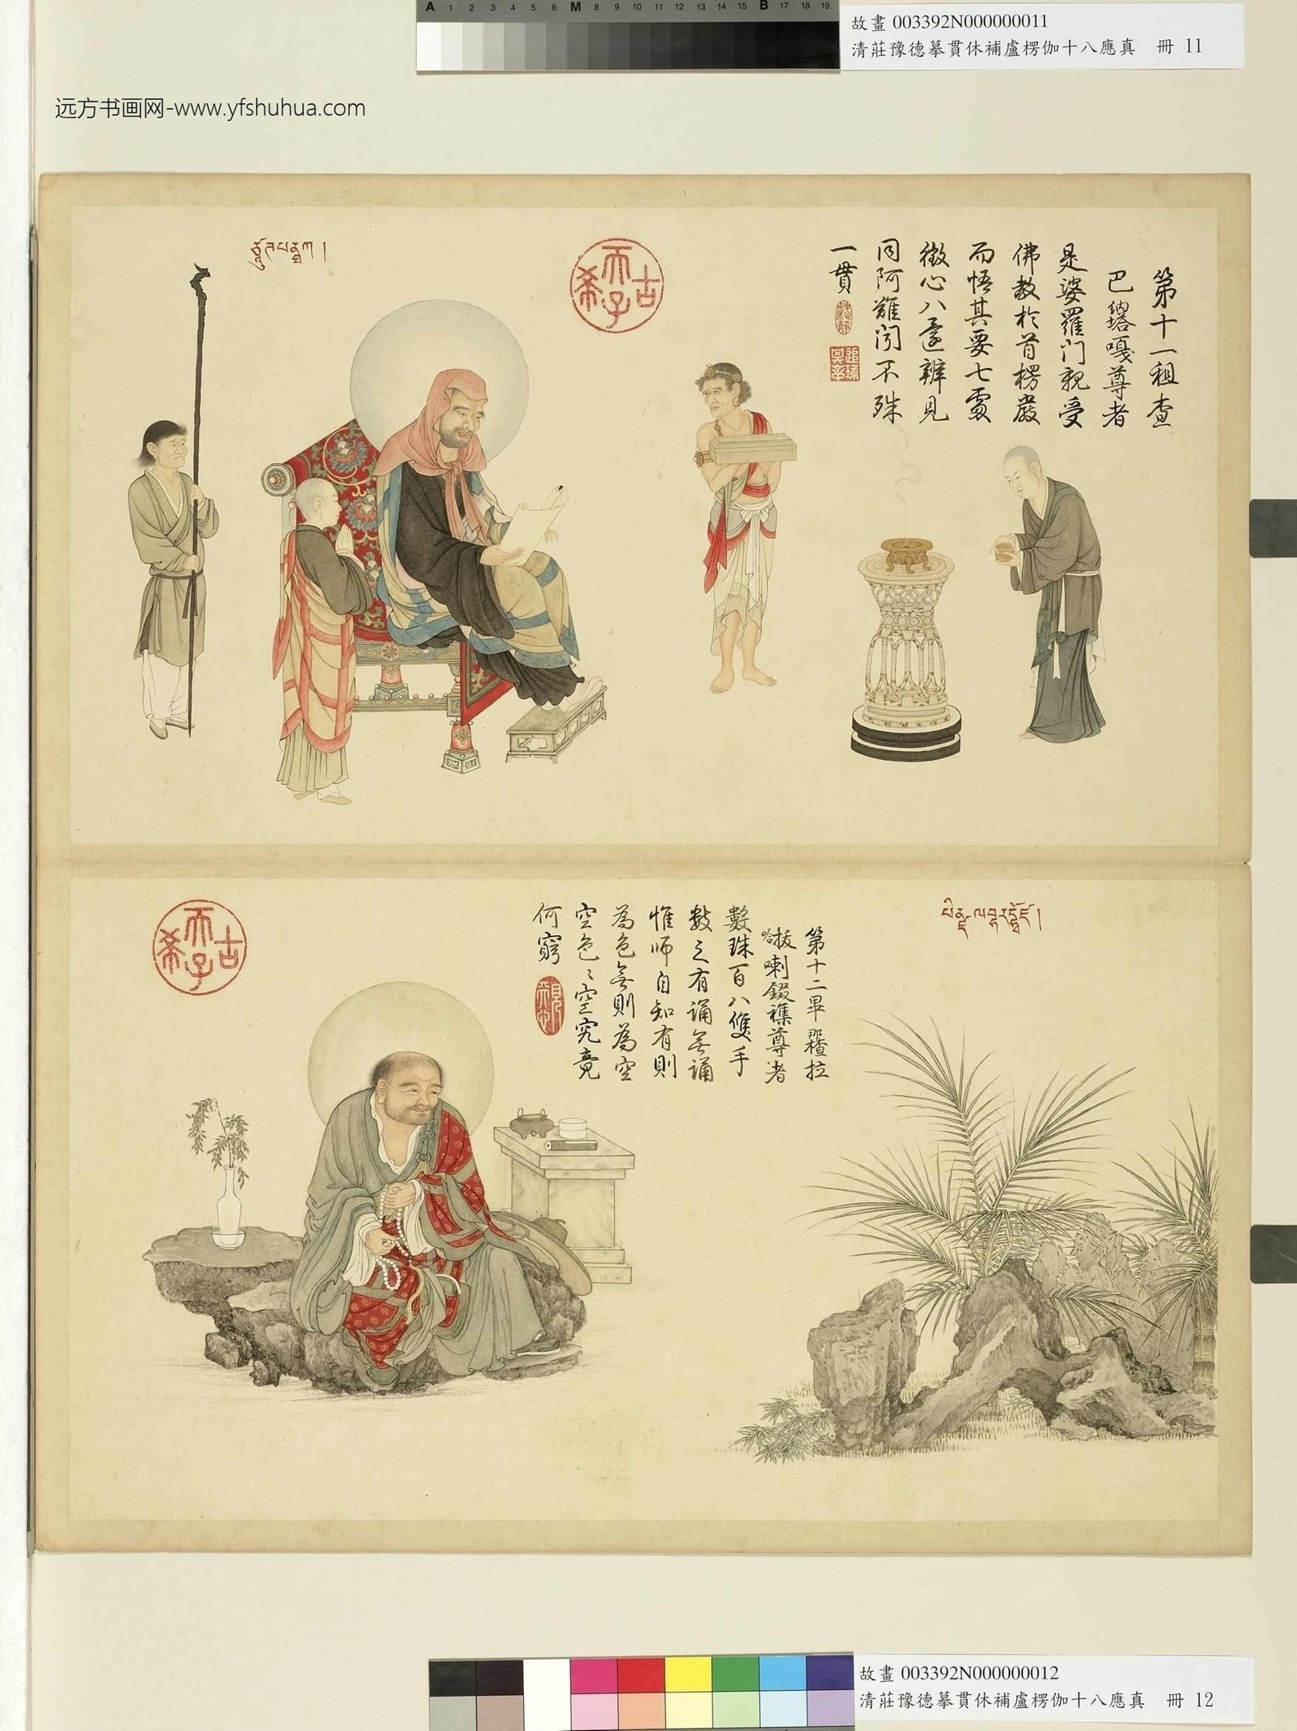 A 1 2 3 4 5 6 M 8 9 10 11 12 13 14 15 B 17 18 19
故畫 003392N000000011
清莊豫德摹貫休補盧楞伽十八應真 冊 11
远方书画网-www.yfshuhua.com
第十一租查
巴納塔嘎尊者
是婆羅門親受
佛教於首楞嚴
而悟其要七處
徵心八還辨見
同阿難閦不殊
一貫
古
希
天
子
第十二畢
拉
拔哈喇鍐襍尊者
數珠百八雙手
數之有誦無誦
惟師自知有則
為色無則為空
空色〻空究竟
何窮
古
希
天
子
故畫 003392N000000012
清莊豫德摹貫休補盧楞伽十八應真 冊 12